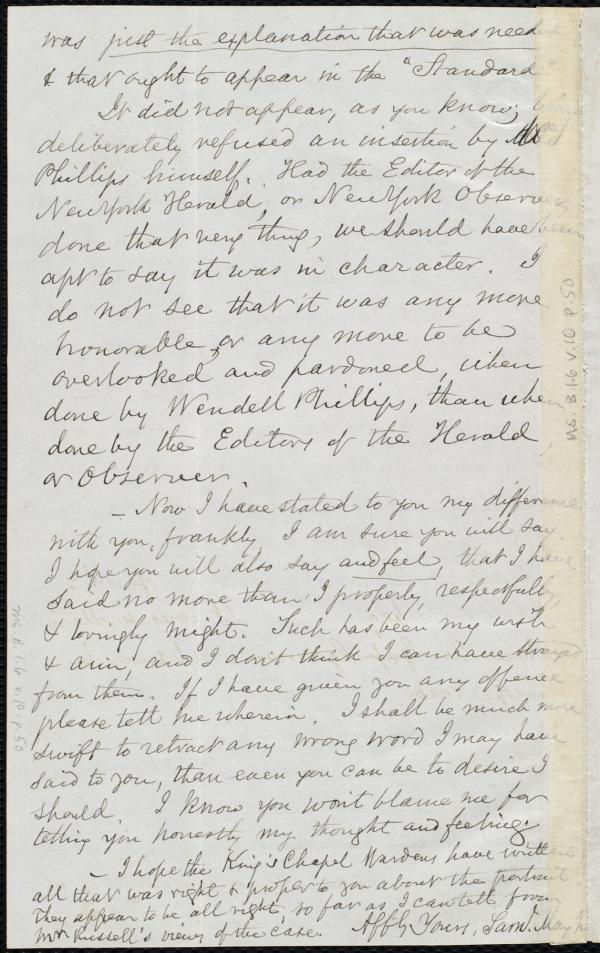 was just the explanation that was needed
& that ought to appear in the "Standard"
It did not appear, as you know; being
deliberately refused an insertion by Mr
Phillips himself. Had the Editor of the
New York Herald, or New York Observer,
done that very thing, we should have been
apt to say it was in character. I
do not see that it was any more
honorable, or any more to be
overlooked and pardoned, when
done by Wendell Phillips, than when
done by the Editors of the Herald,
or Observer.
– Now I have stated to you my difference
with you, frankly I am sure you will say.
I hope you will also say and feel, that I have
said no more than I properly, respectfully,
& lovingly might. Such has been my wish
& aim; and I don't think I can have strayed
from them. If I have given you any offence
please tell me wherein. I shall be much more
swift to retract any wrong word I may have
said to you, than even you can be to desire I
should. I know you won't blame me for
telling you honestly my thought and feeling.
– I hope the King's Chapel Wardens have written
all that was right & proper to you about the portrait.
They appear to be all right, so far as I can tell from
Mr. Russell's view of the case. Affly Yours, Saml. May Jr
Ms. B.1.6 v.10 p.50
Ms. B.1.6 v.10 p.50